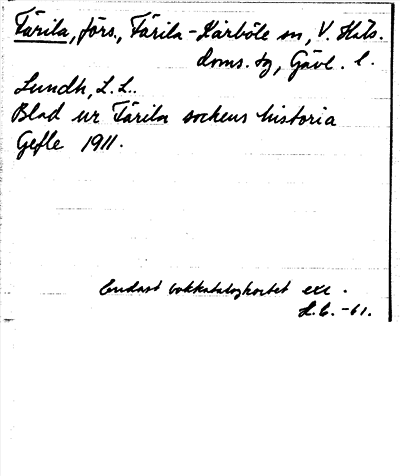 Färila, förs., Färila-Kårböle sn, V. Häls.
doms. sg, Gävl. l.
Lundh, L. L..
Blad ur Färila sockens historia
Gefle 1911.
Endast bokkatalogkortet exc.
H.C. -61.